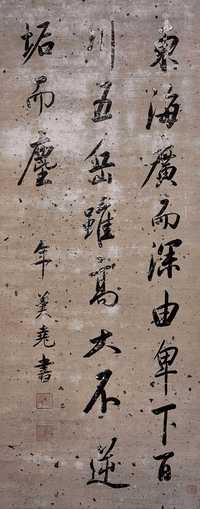 東海廣而深由卑下百
川五岳雖高大不逆
垢而塵 年羹堯書